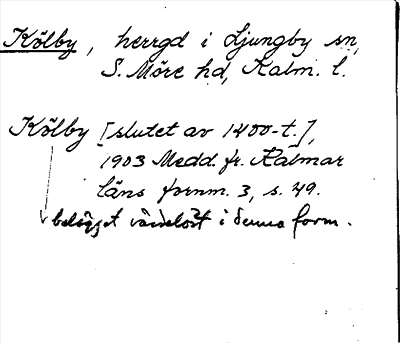 Kölby, herrgd i Ljungby sn,
S. Möre hd, Kalm. l.
Kölby [slutet av 1400-t.],
1903 Medd. fr. Kalmar
läns fornm. 3, s. 49.
belägget värdelöst i denna form.